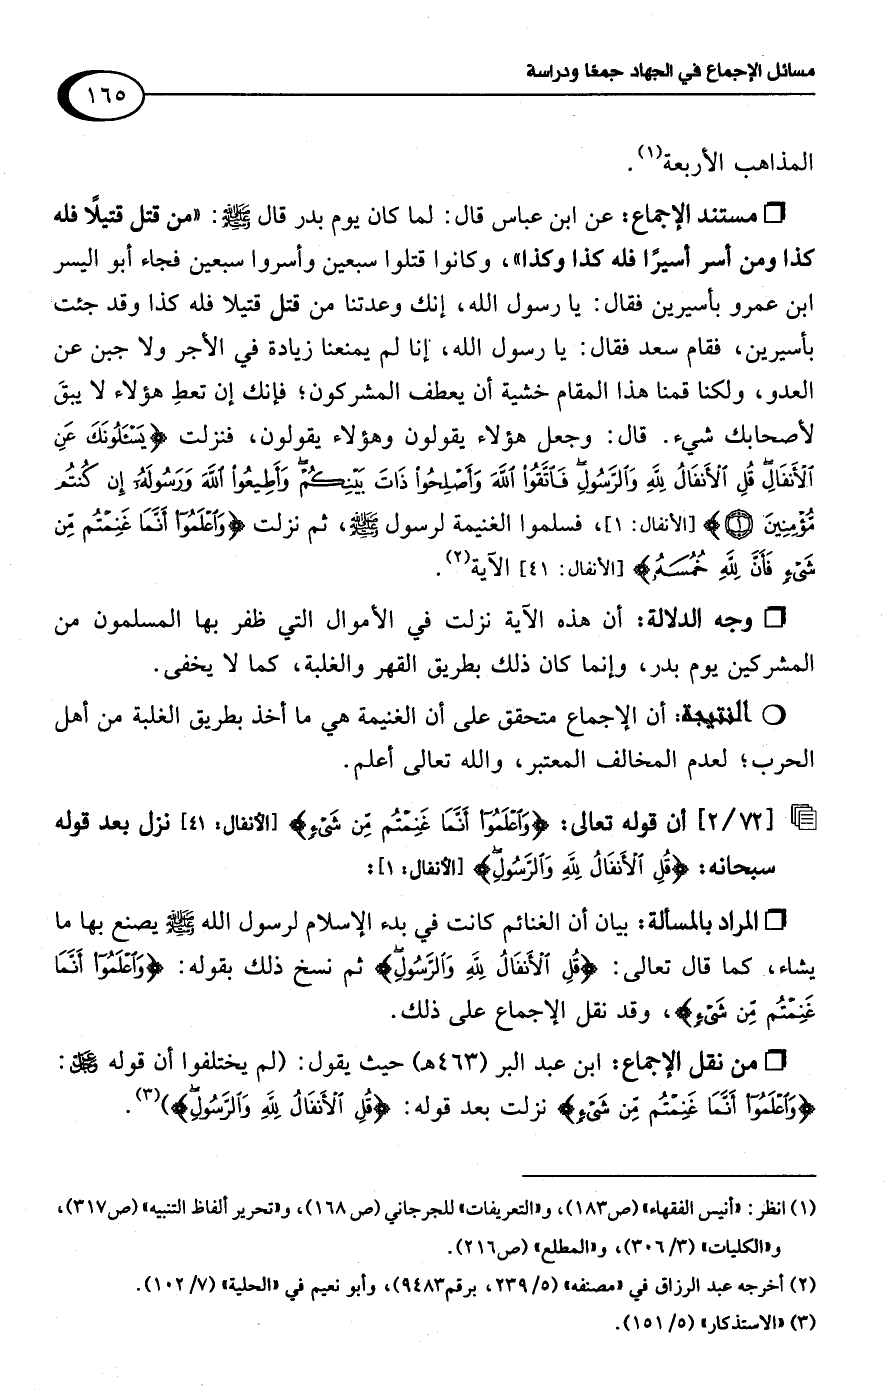 مسائل الإجماع في الجهاد جمعًا ودراسة
١٦٥
المذاهب الأربعة(١).
❒ مستند الإجماع: عن ابن عباس قال: لما كان يوم بدر قال ﷺ: «من قتل قتيلًا فله
كذا ومن أسر أسيرًا فله كذا وكذا»، وكانوا قتلوا سبعين وأسروا سبعين فجاء أبو اليسر
ابن عمرو بأسيرين فقال: يا رسول الله، إنك وعدتنا من قتل قتيلا فله كذا وقد جئت
بأسيرين، فقام سعد فقال: يا رسول الله، إنا لم يمنعنا زيادة في الأجر ولا جبن عن
العدو، ولكنا قمنا هذا المقام خشية أن يعطف المشركون؛ فإنك إن تعطِ هؤلاء لا يبقَ
لأصحابك شيء. قال: وجعل هؤلاء يقولون وهؤلاء يقولون، فنزلت ﴿يَسْـَٔلُونَكَ عَنِ
ٱلْأَنفَالِۖ قُلِ ٱلْأَنفَالُ لِلَّهِ وَٱلرَّسُولِۖ فَٱتَّقُوا۟ ٱللَّهَ وَأَصْلِحُوا۟ ذَاتَ بَيْنِكُمْۖ وَأَطِيعُوا۟ ٱللَّهَ وَرَسُولَهُۥٓ إِن كُنتُم
مُّؤْمِنِينَ ۝١﴾ [الأنفال: ١]، فسلموا الغنيمة لرسول ﷺ، ثم نزلت ﴿وَٱعْلَمُوٓا۟ أَنَّمَا غَنِمْتُم مِّن
شَىْءٍ فَأَنَّ لِلَّهِ خُمُسَهُۥ﴾ [الأنفال: ٤١] الآية(٢).
❒ وجه الدلالة: أن هذه الآية نزلت في الأموال التي ظفر بها المسلمون من
المشركين يوم بدر، وإنما كان ذلك بطريق القهر والغلبة، كما لا يخفى.
❍ النتيجة: أن الإجماع متحقق على أن الغنيمة هي ما أخذ بطريق الغلبة من أهل
الحرب؛ لعدم المخالف المعتبر، والله تعالى أعلم.
[٢/٧٢] أن قوله تعالى: ﴿وَٱعْلَمُوٓا۟ أَنَّمَا غَنِمْتُم مِّن شَىْءٍ﴾ [الأنفال: ٤١] نزل بعد قوله
سبحانه: ﴿قُلِ ٱلْأَنفَالُ لِلَّهِ وَٱلرَّسُولِۖ﴾ [الأنفال: ١]:
❒ المراد بالمسألة: بيان أن الغنائم كانت في بدء الإسلام لرسول الله ﷺ يصنع بها ما
يشاء، كما قال تعالى: ﴿قُلِ ٱلْأَنفَالُ لِلَّهِ وَٱلرَّسُولِۖ﴾ ثم نسخ ذلك بقوله: ﴿وَٱعْلَمُوٓا۟ أَنَّمَا
غَنِمْتُم مِّن شَىْءٍ﴾، وقد نقل الإجماع على ذلك.
❒ من نقل الإجماع: ابن عبد البر (٤٦٣هـ) حيث يقول: (لم يختلفوا أن قوله ﷻ:
﴿وَٱعْلَمُوٓا۟ أَنَّمَا غَنِمْتُم مِّن شَىْءٍ﴾ نزلت بعد قوله: ﴿قُلِ ٱلْأَنفَالُ لِلَّهِ وَٱلرَّسُولِۖ﴾)(٣).
(١) انظر: «أنيس الفقهاء» (ص١٨٣)، و«التعريفات» للجرجاني (ص١٦٨)، و«تحرير ألفاظ التنبيه» (ص٣١٧)،
و«الكليات» (٣٠٦/٣)، و«المطلع» (ص٢١٦).
(٢) أخرجه عبد الرزاق في «مصنفه» (٢٣٩/٥، برقم٩٤٨٣)، وأبو نعيم في «الحلية» (١٠٢/٧).
(٣) «الاستذكار» (١٥١/٥).